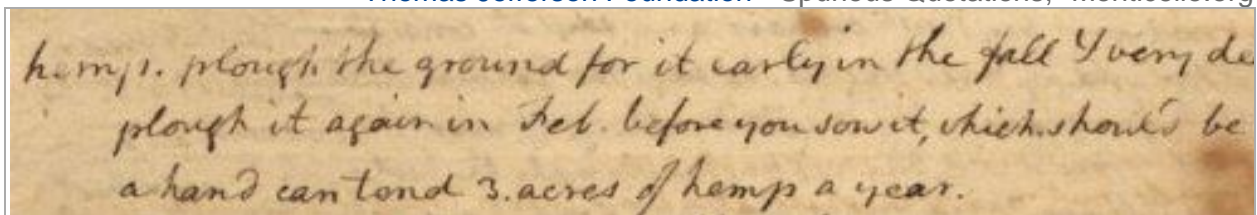 Thomas Jefferson Foundation "Spurious Quotations," Monticello.org
hemp. plough the ground for it early in the fall & very de
plough it again in Feb. before you sow it, which should be
a hand can tend 3. acres of hemp a year.